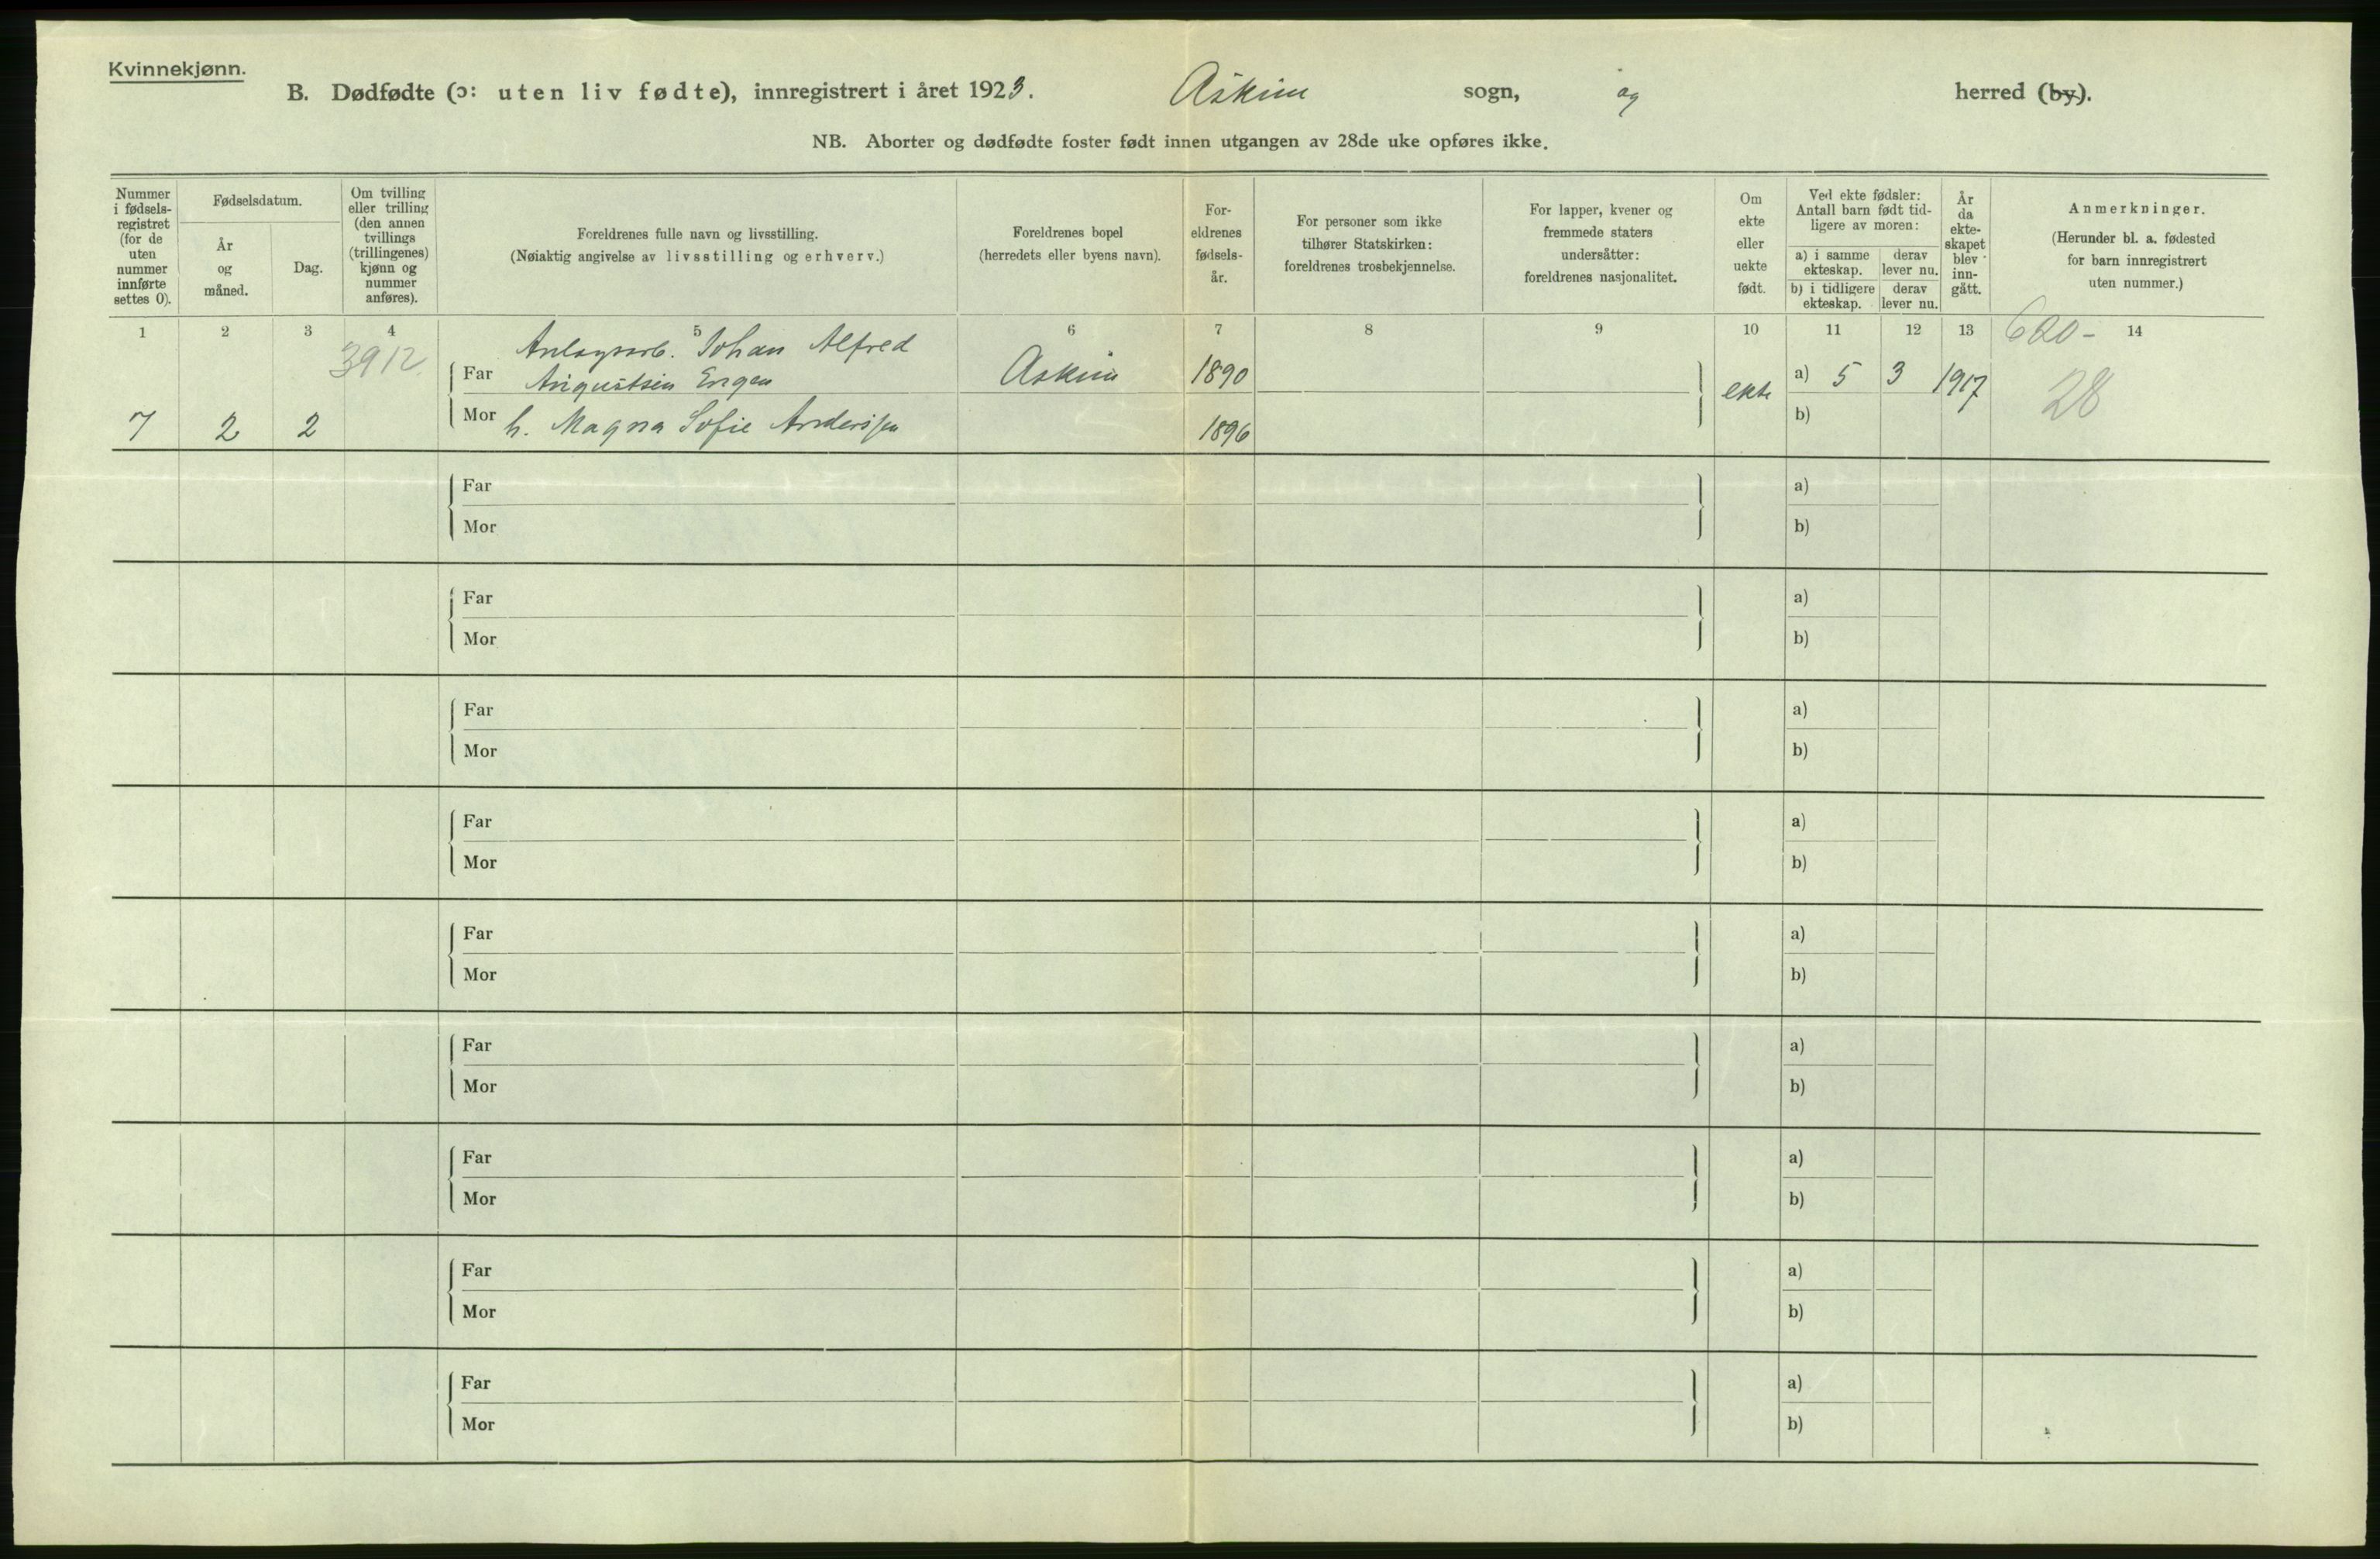 Kvinnekjønn.
B. Dødfødte (ɔ: uten liv fødte), innregistrert i året 1923. Askim sogn, og herred (by).
NB. Aborter og dødfødte foster født innen utgangen av 28de uke opføres ikke.
Nummer i fødselsregistret (for de uten nummer innførte settes 0).
Fødselsdatum.
År og måned.
Dag.
Om tvilling eller trilling (den annen tvillings (trillingenes) kjønn og nummer anføres).
Foreldrenes fulle navn og livsstilling.
(Nøiaktig angivelse av livsstilling og erhverv.)
Foreldrenes bopel
(herredets eller byens navn).
Foreldrenes fødselsår.
For personer som ikke tilhører Statskirken: foreldrenes trosbekjennelse.
For lapper, kvener og fremmede staters undersåtter: foreldrenes nasjonalitet.
Om ekte eller uekte født.
Ved ekte fødsler: Antall barn født tidligere av moren:
a) i samme ekteskap.
derav lever nu.
b) i tidligere ekteskap.
derav lever nu.
År da ekteskapet blev inngått.
Anmerkninger.
(Herunder bl. a. fødested for barn innregistrert uten nummer.)
1 2 3 4 5 6 7 8 9 10 11 12 13 14
620-
3912
Anlagsarb. Johan Alfred
Far Augustsen Engen Askim 1890 ekte a) 5 3 1917 28
7 2 2 Mor h. Magna Sofie Anderssen 1896 b)
Far a)
Mor b)
Far a)
Mor b)
Far a)
Mor b)
Far a)
Mor b)
Far a)
Mor b)
Far a)
Mor b)
Far a)
Mor b)
Far a)
Mor b)
Far a)
Mor b)